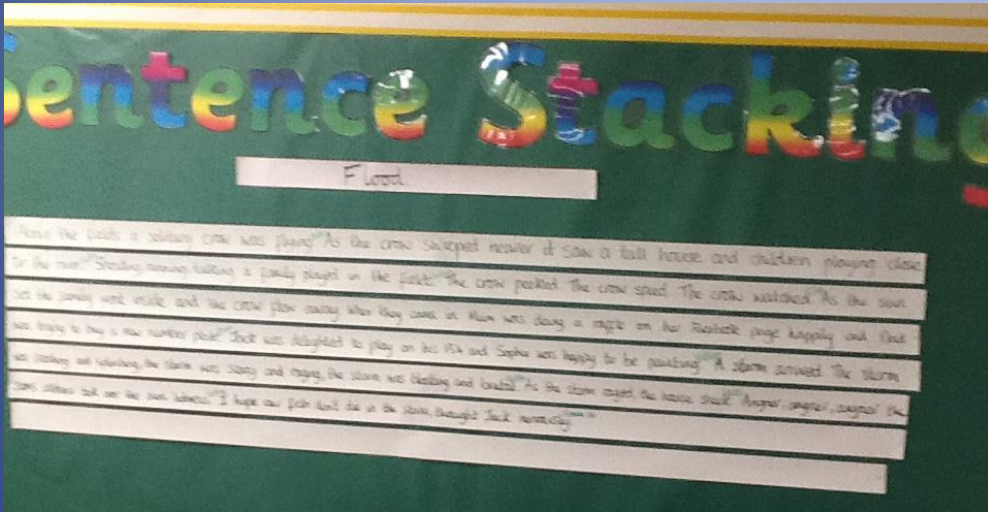 Sentence Stacking
Flood.
Above the fields a solitary crow was flying As the crow swooped nearer it saw a tall house and children playing close
to the river. Standing, running, talking a family played in the fields. The crow pecked. The crow spied. The crow watched. As the sun
set the family went inside and the crow flew away When they came in Mum was doing a on her page happily and Dad
was trying to buy a new number plate. Jack was delighted to play on his PS4 and Sophie was happy to be painting. A storm arrived The storm
was and the storm was and raging, the storm was and As the storm raged the house shook. Angrier, angrier, angrier the
storm out over the "I hope our fish don't die in the storm, thought Jack nervously.